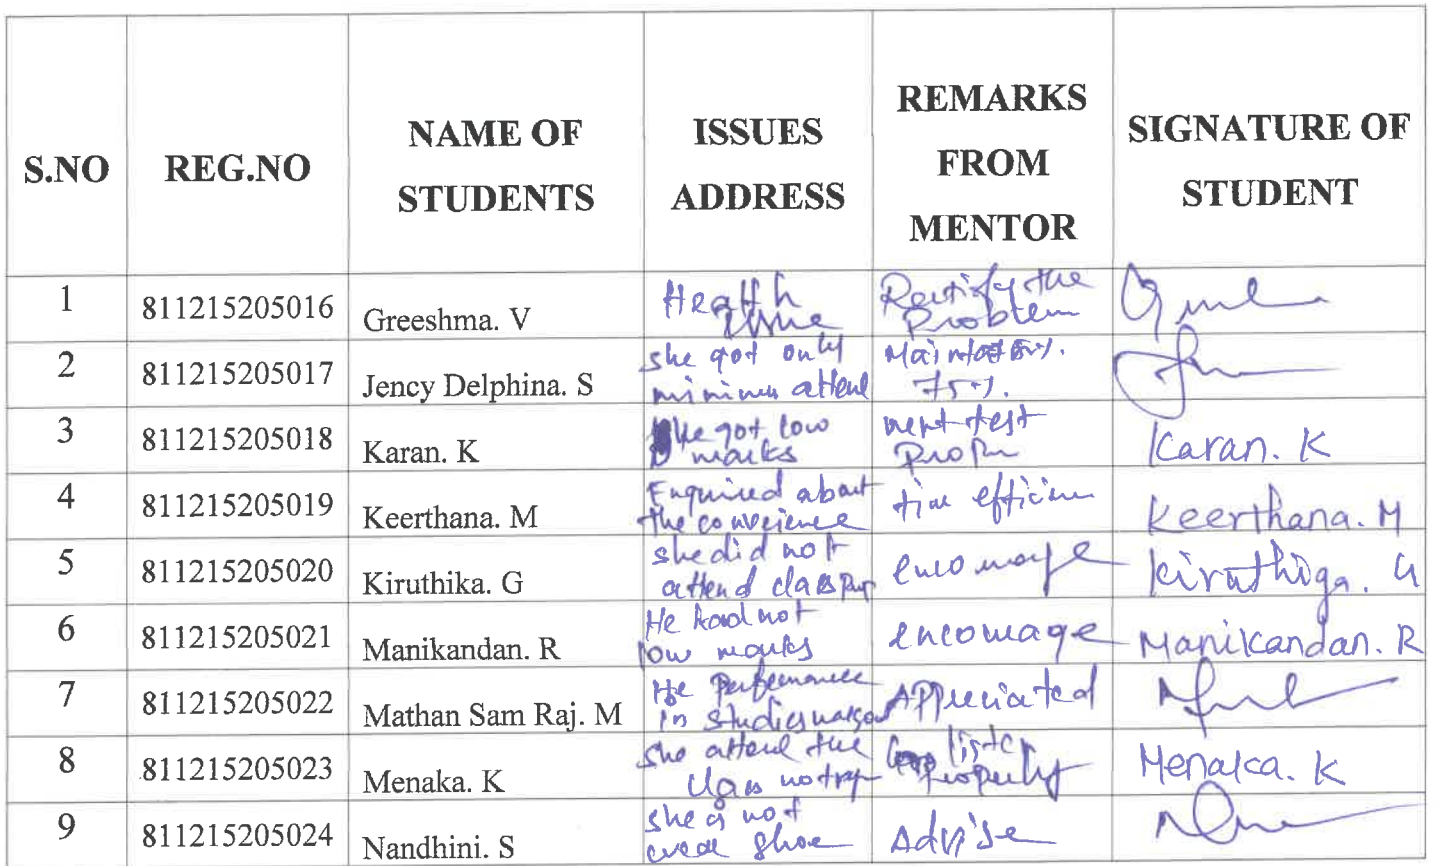 S.NO REG.NO NAME OF STUDENTS ISSUES ADDRESS REMARKS FROM MENTOR SIGNATURE OF STUDENT
1 811215205016 Greeshma. V Health Issue Rectify the Problem
2 811215205017 Jency Delphina. S she got only minimum attend 75%.
3 811215205018 Karan. K He got low marks next test Karan. K
4 811215205019 Keerthana. M Enquired about the time Keerthana. M
5 811215205020 Kiruthika. G she did not attend class encourage Kiruthiga. G
6 811215205021 Manikandan. R He had not low marks encourage Manikandan. R
7 811215205022 Mathan Sam Raj. M He Performance in studies Appreciated
8 811215205023 Menaka. K she attend the class listen Menaka. K
9 811215205024 Nandhini. S she is not shoe Advise